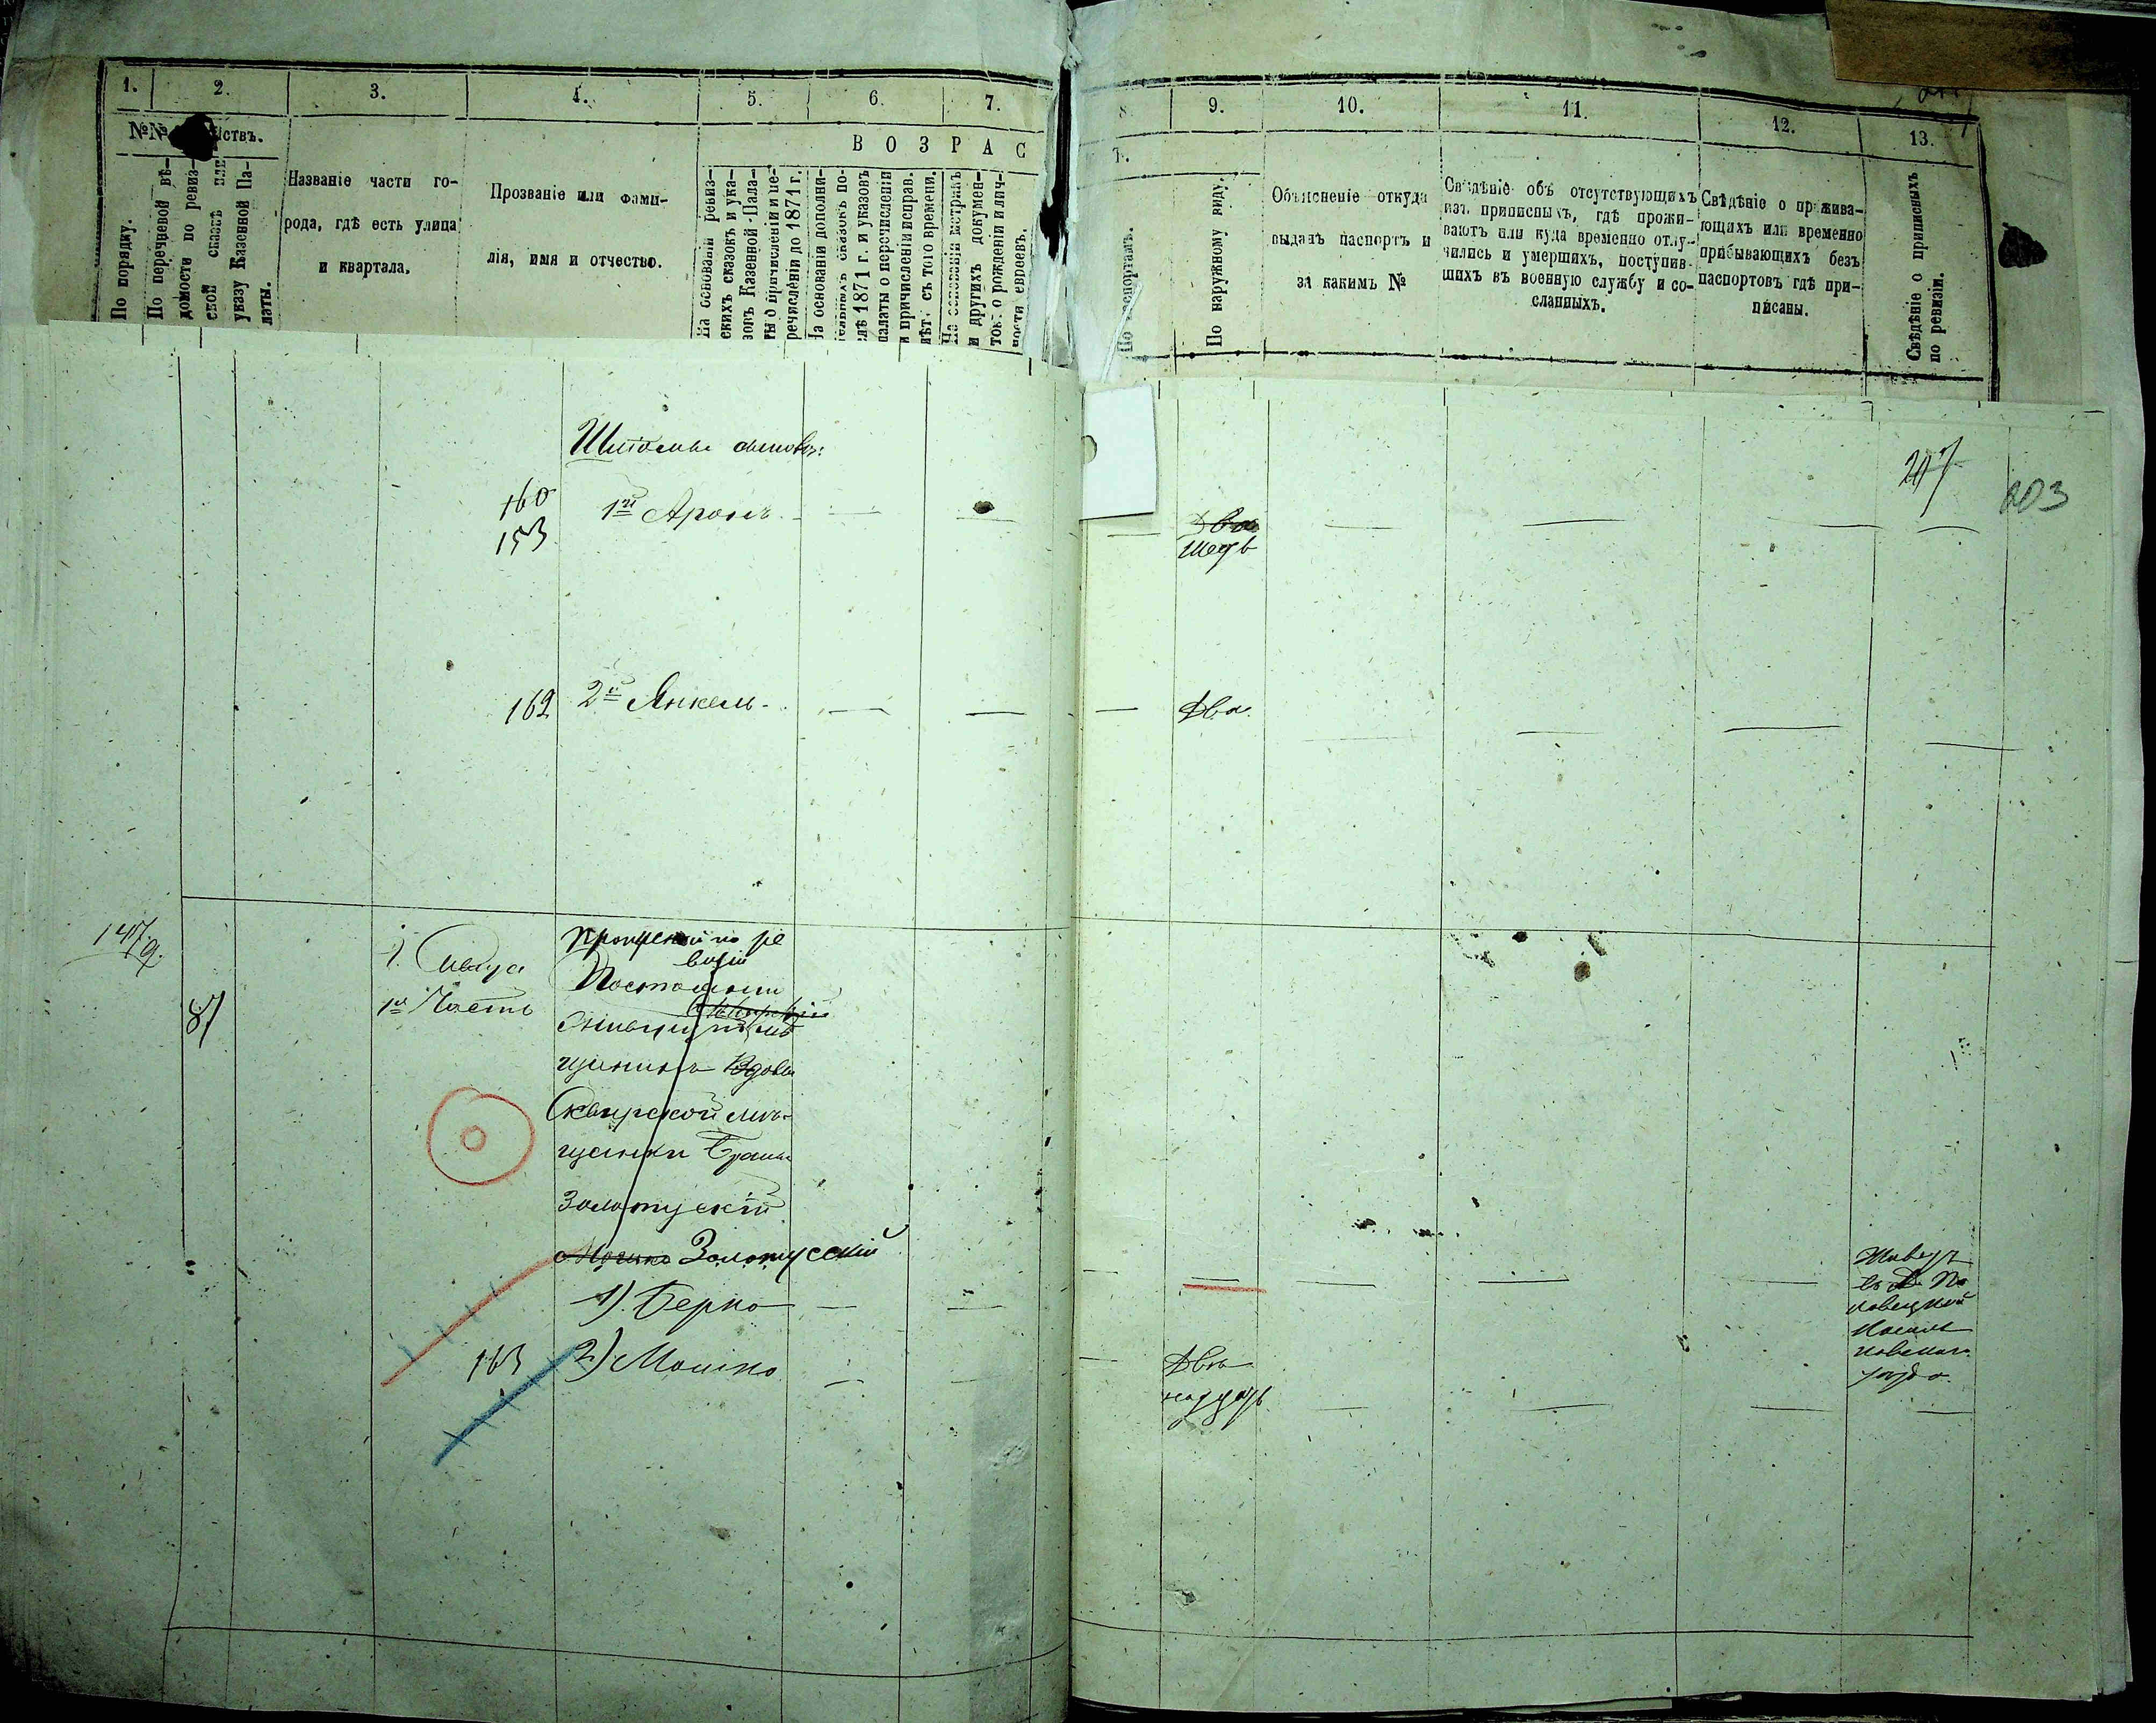 1.
2.
3.
4.
5.
6.
7.
№№
ствъ.
По порядку.
По перечневой вѣ-
домости по ревиз-
ской сказкѣ или
указу Казенной Па-
латы.
Названіе части го-
рода, гдѣ есть улица
и квартала.
Прозваніе или фами-
лія, имя и отчество.
ВОЗРАС
На основаніи ревиз-
скихъ сказокъ и ука-
зовъ Казенной Пала-
ты о причисленіи и пе-
речисленіи до 1871 г.
На основаніи дополни-
тельныхъ сказокъ по-
слѣ 1871 г. и указовъ
палаты о перечисленіи
и причисленіи исправ.
лѣтъ съ того времени.
На основаніи метрикъ
и другихъ докумен-
товъ о рожденіи и лич-
ности евреевъ.
8.
9.
10.
11.
12.
13.
Т.
По паспортамъ.
По наружному виду.
Объясненіе откуда
выданъ паспортъ и
за какимъ №
Свѣдѣніе объ отсутствующихъ
изъ приписныхъ, гдѣ прожи-
ваютъ или куда временно отлу-
чились и умершихъ, поступив-
шихъ въ военную службу и со-
сланныхъ.
Свѣдѣніе о прожива-
ющихъ или временно
прибывающихъ безъ
паспортовъ гдѣ при-
писаны.
Свѣдѣніе о приписныхъ
по ревизіи.
сыновья:
160
153
1й Аронъ
162
2й Янкель
147/9.
87
1. Сквира
1я Часть
Пропущенный по ре
визіи
щанинъ Вдовы
Сквирской мѣ-
щанки
Золотускій
Мошко Золотусскій
1) Берко
163 2) Мошко
247
203
Два
Два
Два
надцать
Живутъ